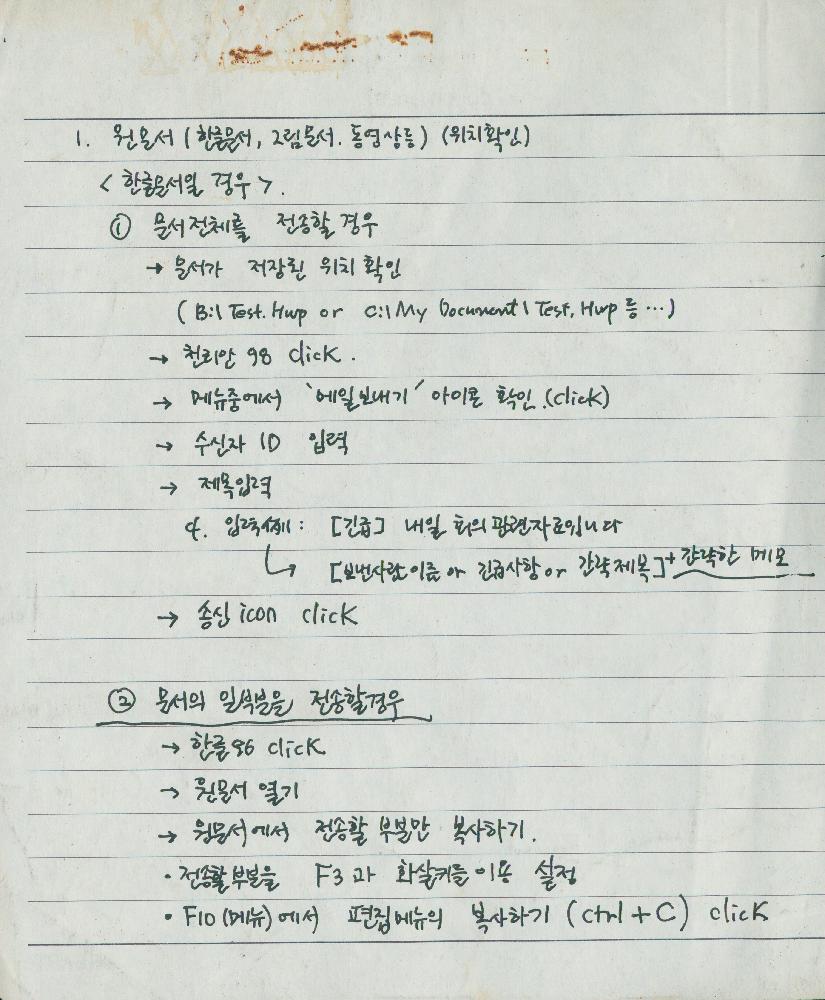 1. 원문서 (한글문서, 그림문서. 동영상등) (위치확인)
< 한글문서일 경우 >.
① 문서전체를 전송할 경우
→ 문서가 저장된 위치 확인
( B:\ Test. Hwp or C:\ My Document \ Test. Hwp 등 … )
→ 천리안 98 click.
→ 메뉴중에서 '메일보내기' 아이콘 확인.(click)
→ 수신자 ID 입력
→ 제목입력
입력예: [긴급] 내일 회의 관련자료입니다
[보낸사람이름 or 긴급사항 or 간략제목] + 간략한 메모
→ 송신 icon click
② 문서의 일부분을 전송할경우
→ 한글96 click
→ 원문서 열기
→ 원문서에서 전송할 부분만 복사하기.
• 전송할부분을 F3과 화살키를 이용 설정
• F10 (메뉴)에서 편집메뉴의 복사하기 (ctrl + C) click